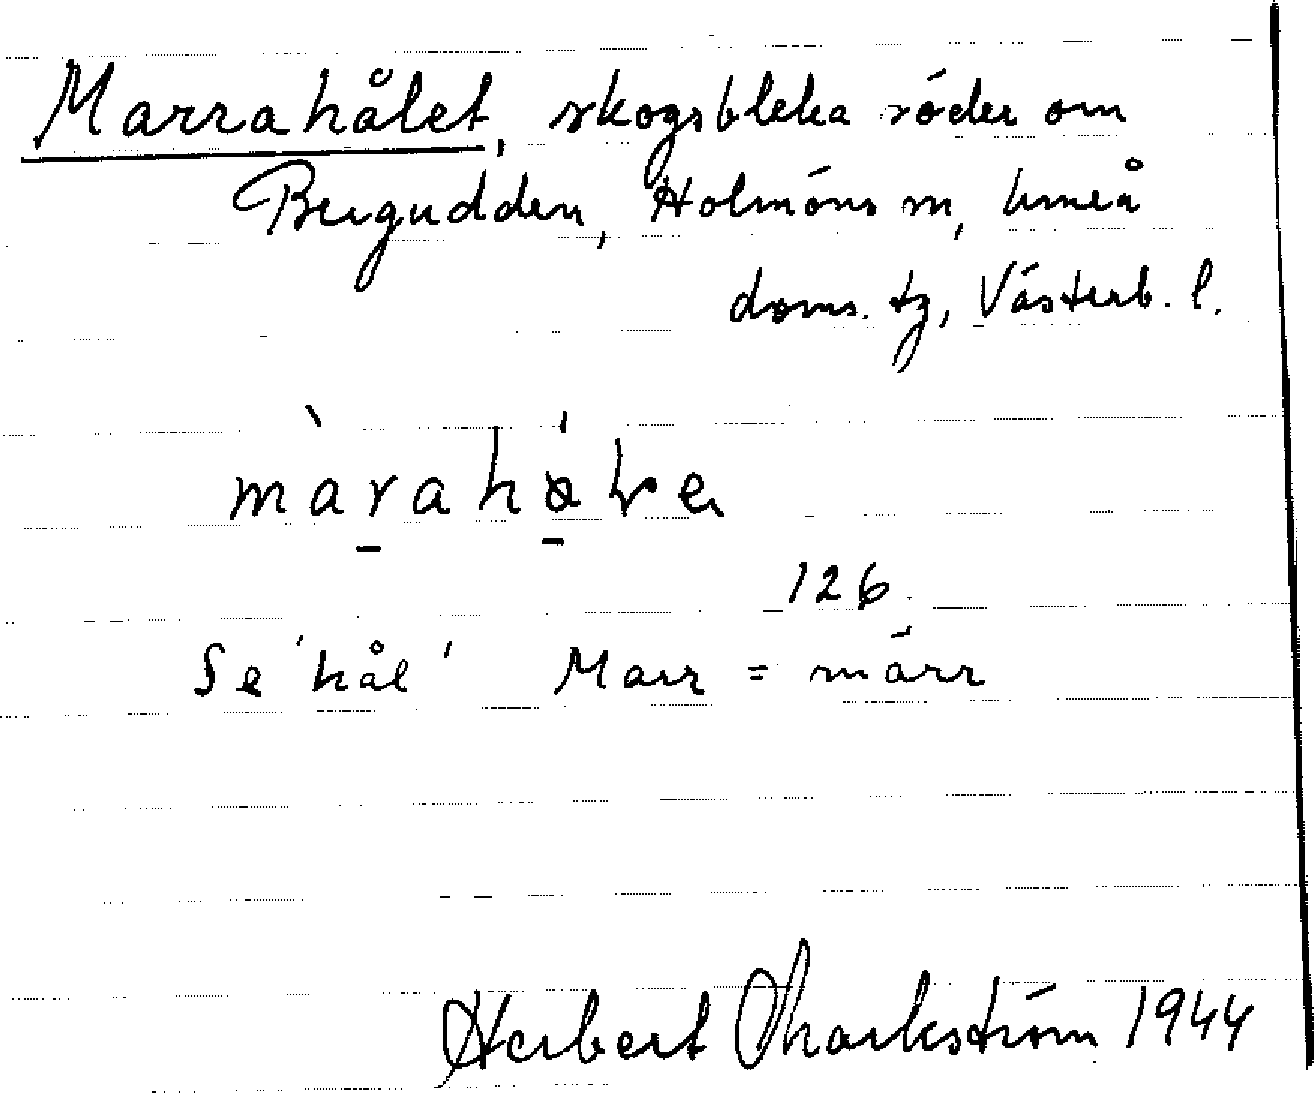 Marrahålet, skogsbleka söder om
Bergudden, Holmöns sn, Umeå
doms. tg, Västerb. l.
126
Se 'hål' Marr = märr
Herbert Markström 1944